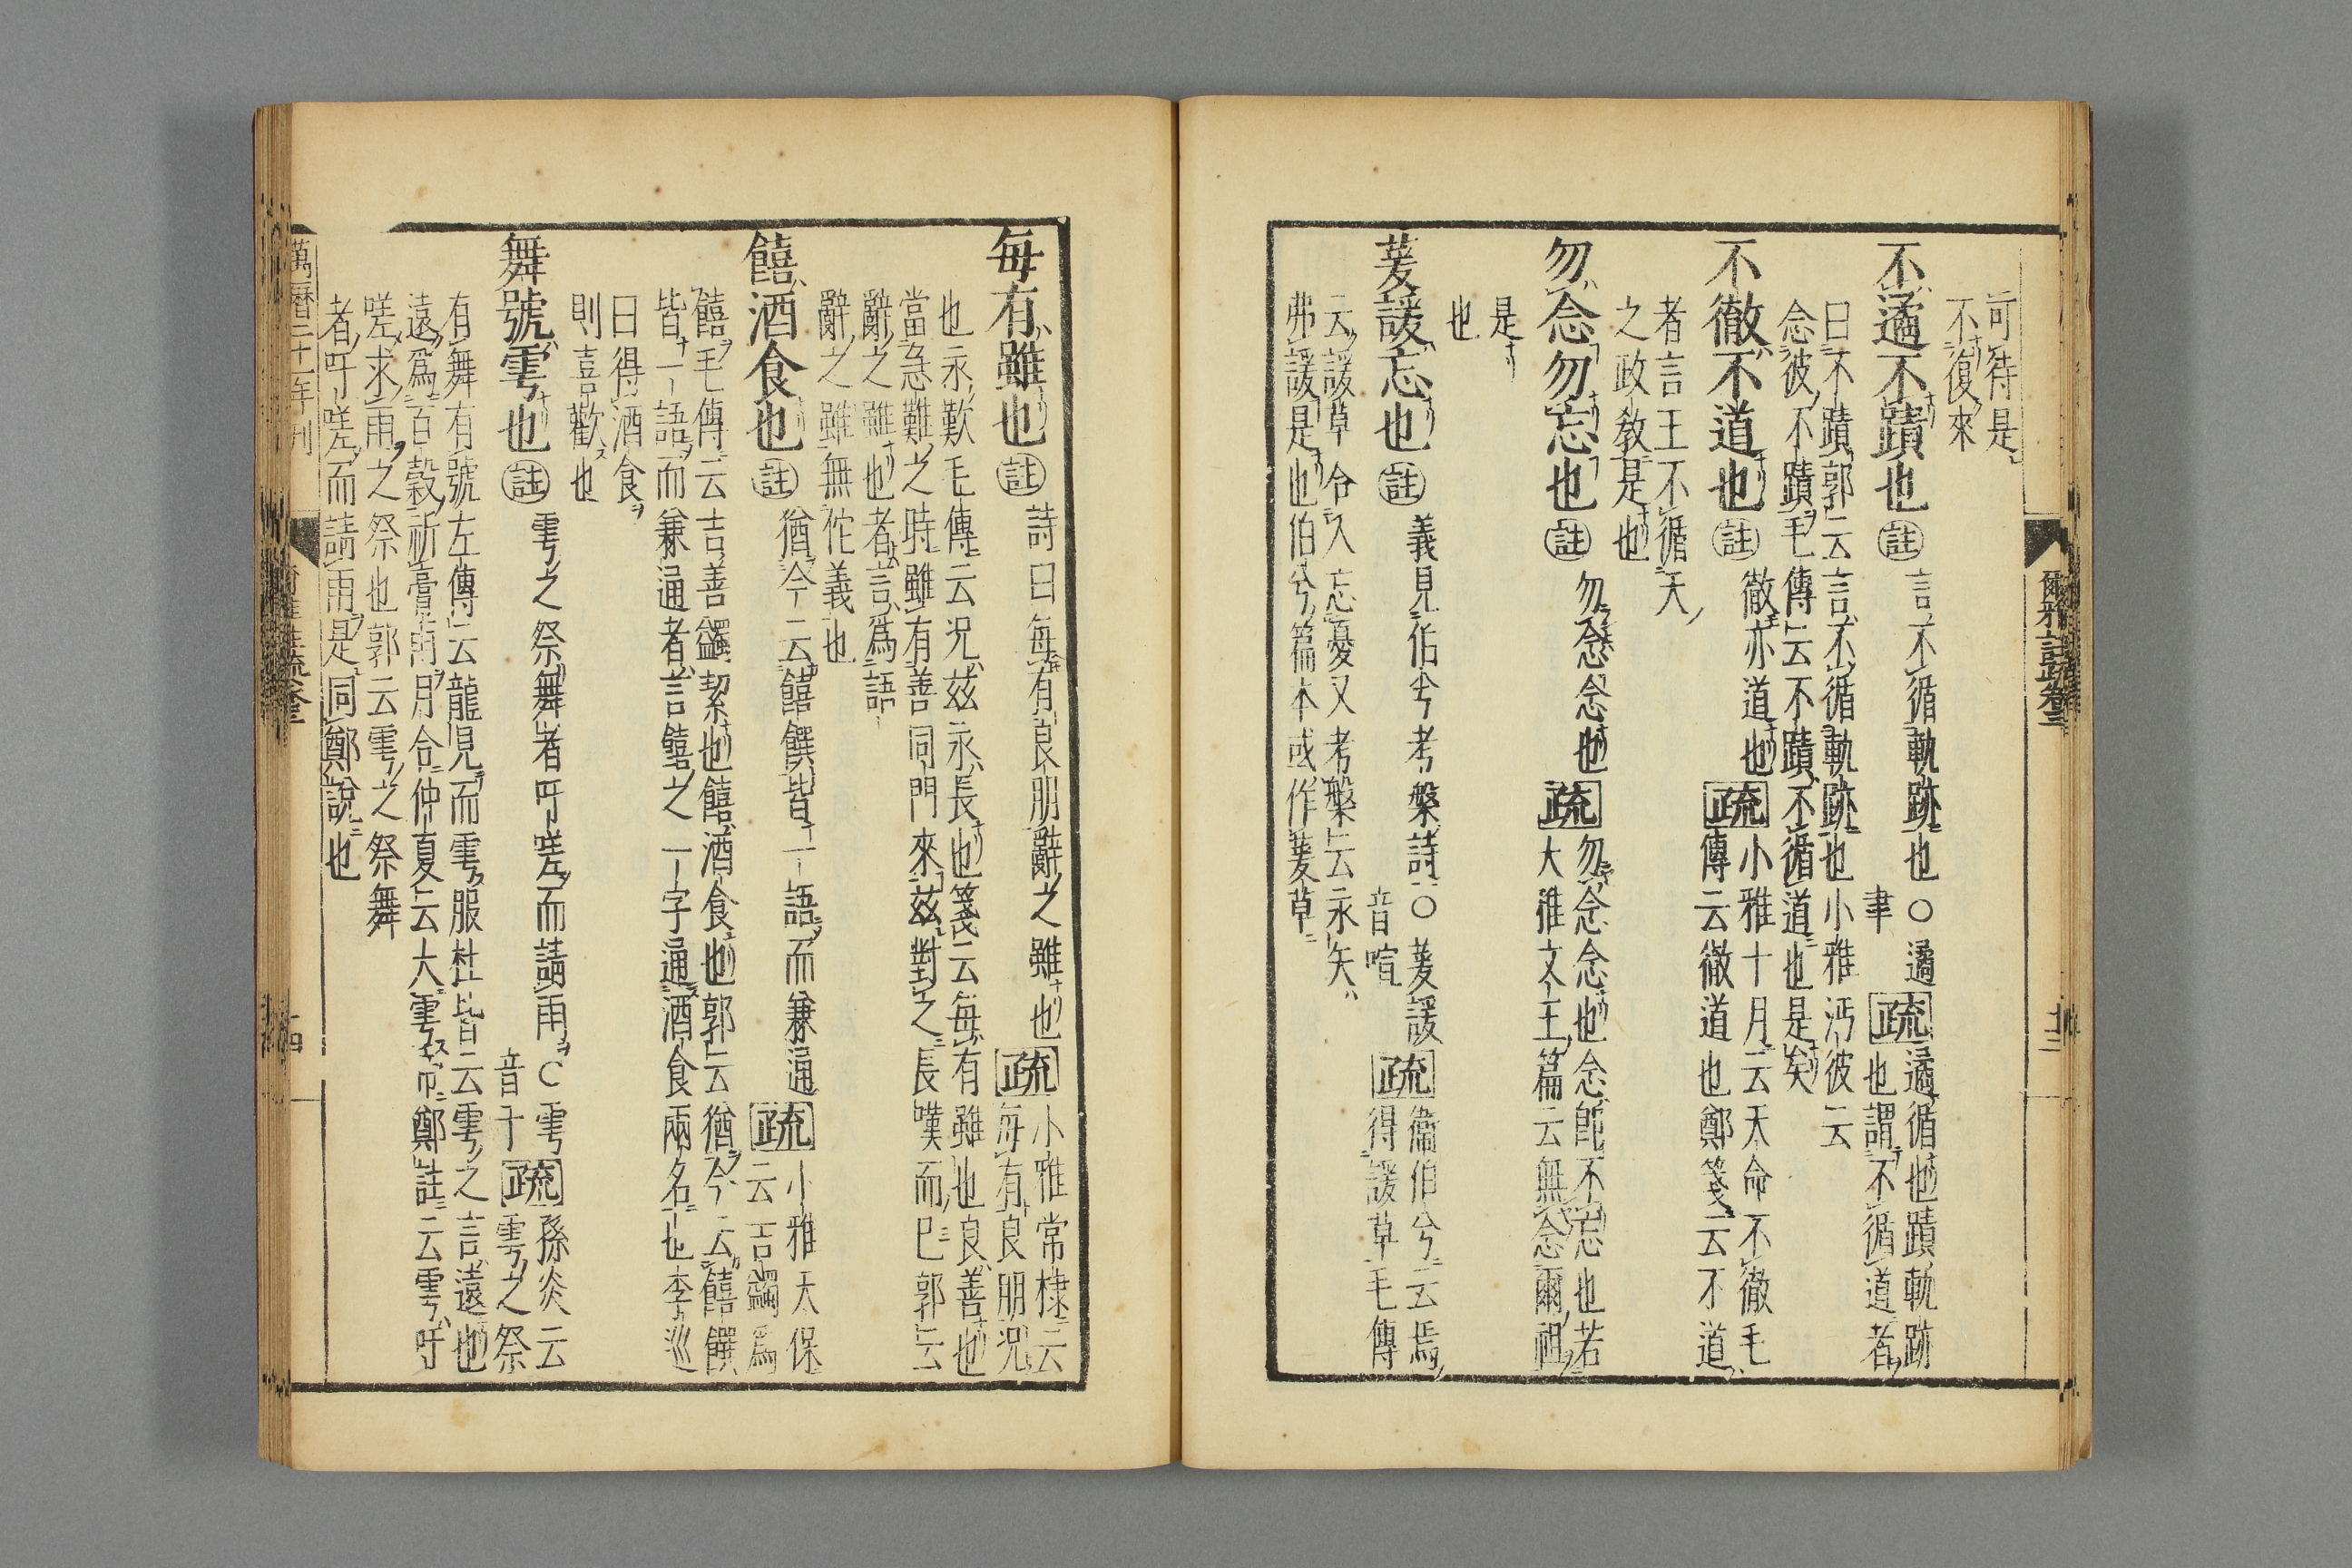 爾雅註疏卷三
可待是
不復來
不遹不蹟也註言不循軌跡也○遹
聿疏遹循也蹟軌跡
也謂不循道者
曰不蹟郭云言不循軌跡也小雅沔彼云
念彼不蹟毛傳云不蹟不循道也是矣
不徹不道也註徹亦道也疏小雅十月云天命不徹毛
傳云徹道也鄭箋云不道
者言王不循天
之政教是也
勿念勿忘也註勿念念也疏勿念念也念卽不忘也若
大雅文王篇云無念爾祖
是
也
萲諼忘也註義見伯兮考槃詩○萲諼
音喧疏衞伯兮云焉
得諼草毛傳
云諼草令人忘憂又考槃云永矢
弗諼是也伯兮篇本或作萲草
每有雖也註詩曰每有良朋辭之雖也疏小雅常棣云
每有良朋況
也永歎毛傳云況茲永長也箋云每有雖也良善也
當急難之時雖有善同門來茲對之長嘆而巳郭云
辭之雖也者言爲語
辭之雖無佗義也
饎酒食也註猶今云饎饌皆一語而兼通疏小雅天保
云吉蠲爲
饎毛傳云吉善蠲絜也饎酒食也郭云猶今云饎饌
皆一語而兼通者言饎之一字通酒食兩名也李巡
曰得酒食
則喜歡也
舞號雩也註雩之祭舞者吁嗟而請雨○雩
音于疏孫炎云
雩之祭
有舞有號左傳云龍見而雩服杜皆云雩之言遠也
遠爲百穀祈膏雨月令仲夏云大雩帝鄭註云雩吁
嗟求雨之祭也郭云雩之祭舞
者吁嗟而請雨是同鄭說也
萬曆二十一年刊